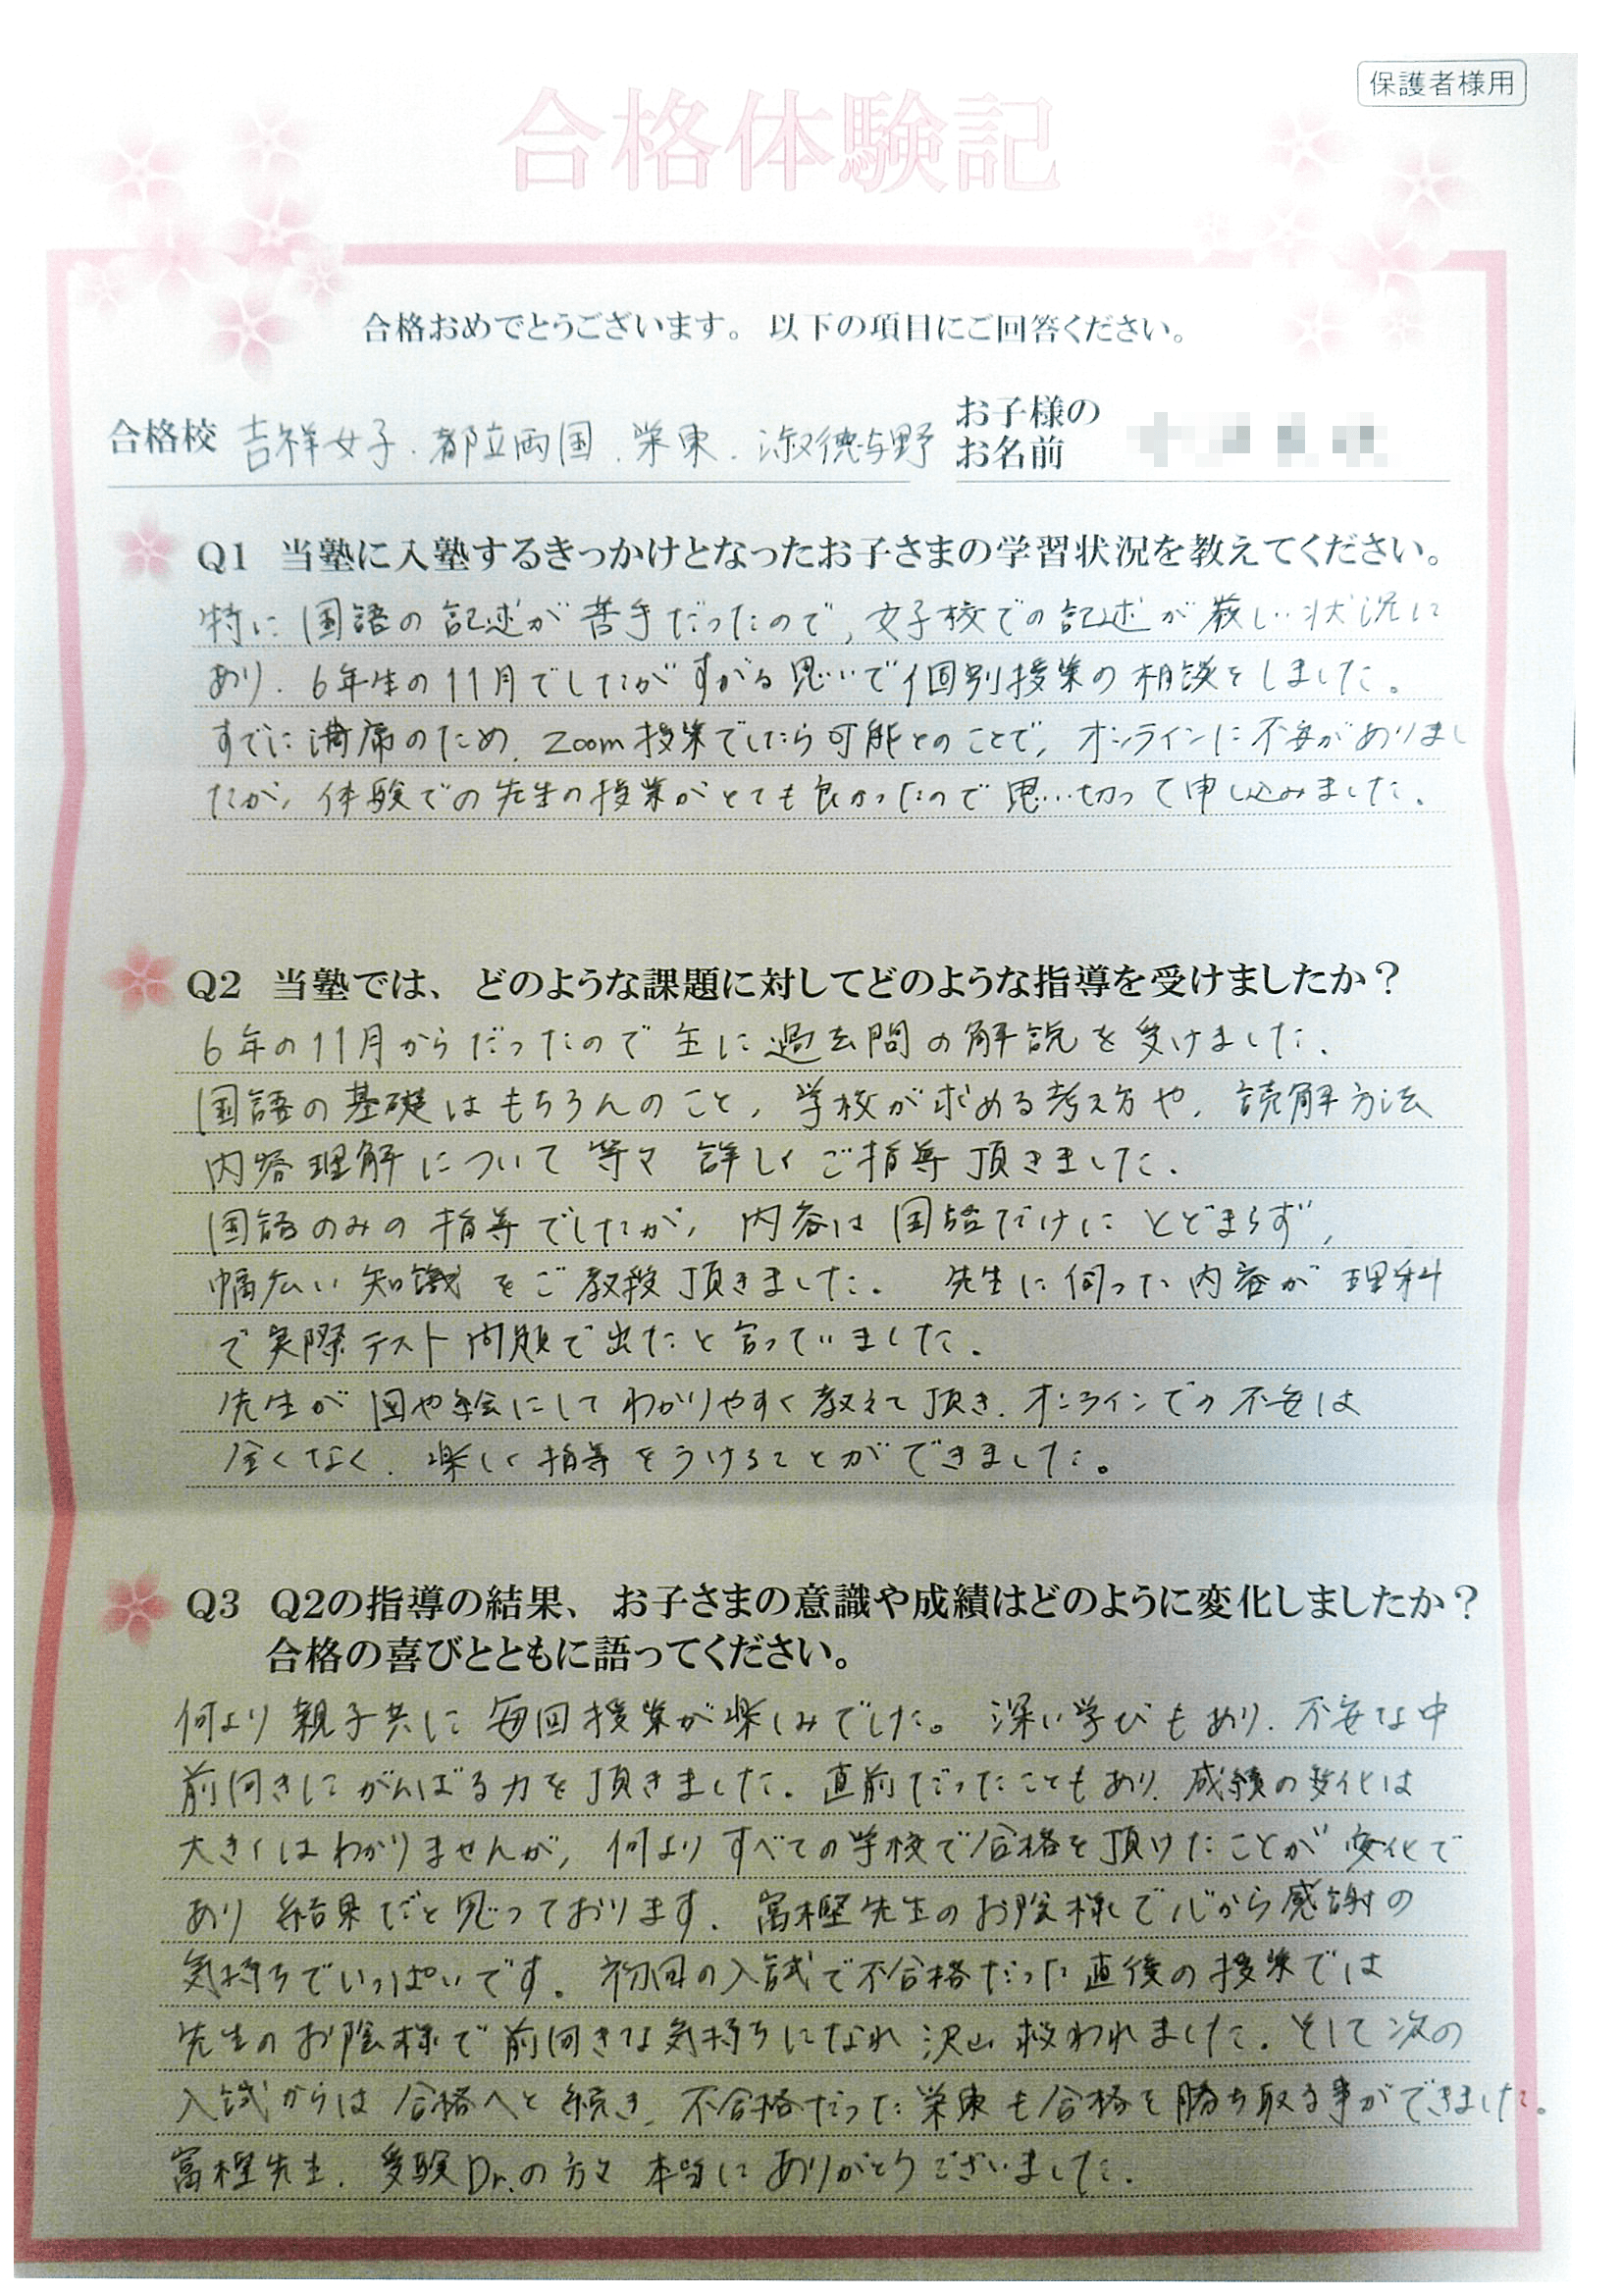 保護者様用
合格体験記
合格おめでとうございます。以下の項目にご回答ください。
合格校 吉祥女子.都立両国.栄東.淑徳与野
お子様の
お名前
Q1 当塾に入塾するきっかけとなったお子さまの学習状況を教えてください。
特に国語の記述が苦手だったので、女子校での記述が厳しい状況に
あり.6年生の11月でしたがすがる思いで個別授業の相談をしました。
すでに満席のため.Zoom授業でしたら可能とのことで,オンラインに不安がありまし
たが,体験での先生の授業がとても良かったので思い切って申し込みました.
Q2 当塾では、どのような課題に対してどのような指導を受けましたか？
6年の11月からだったので主に過去問の解説を受けました.
国語の基礎はもちろんのこと,学校が求める考え方や,読解方法
内容理解について等々詳しくご指導頂きました.
国語のみの指導でしたが,内容は国語だけにとどまらず,
幅広い知識をご教授頂きました。先生に伺った内容が理科
で実際テスト問題で出たと言っていました.
先生が図や絵にしてわかりやすく教えて頂き.オンラインでの不安は
全くなく.楽しく指導をうけることができました。
Q3 Q2の指導の結果、お子さまの意識や成績はどのように変化しましたか？
合格の喜びとともに語ってください。
何より親子共に毎回授業が楽しみでした。深い学びもあり.不安な中
前向きにがんばる力を頂きました.直前だったこともあり.成績の変化は
大きくはわかりませんが,何よりすべての学校で合格を頂けたことが変化で
あり結果だと思っております.冨樫先生のお陰様で心から感謝の
気持ちでいっぱいです.初回の入試で不合格だった直後の授業では
先生のお陰様で前向きな気持ちになれ沢山救われました.そして次の
入試からは合格へと続き.不合格だった栄東も合格を勝ち取る事ができました。
冨樫先生.受験Dr.の方々本当にありがとうございました.